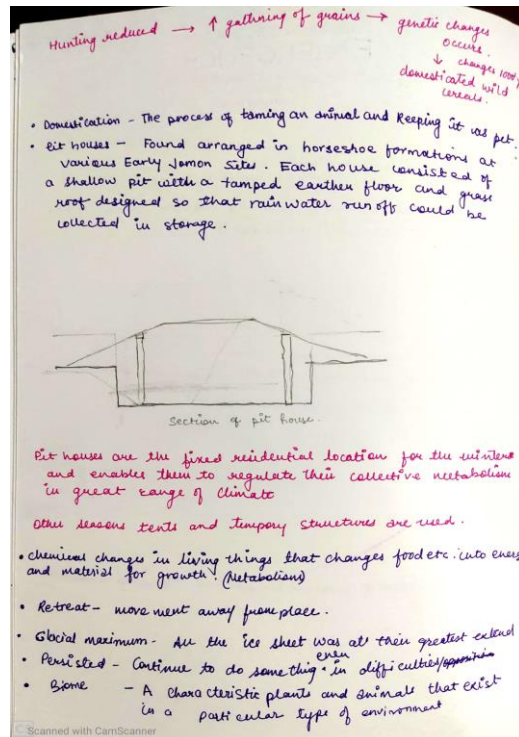 Hunting reduced → ↑ gathning of grains → genetic changes
occurs.
↓ changes
domesticated wild
cereals.
• Domestication - The process of taming an animal and keeping it as pet.
• Pit houses - Found arranged in horseshoe formations at
various Early Jomon Sites. Each house consisted of
a shallow pit with a tamped earthen floor and grass
roof designed so that rain water run off could be
collected in storage.
Section of pit house.
Pit houses are the fixed residential location for the winters
and enables them to regulate their collective metabolism
in great range of Climate
Other seasons tents and tempory structures are used.
• chemical changes in living things that changes food etc. into energ
and material for growth. (Metabolism)
• Retreat - movement away from place.
• Glacial maximum - All the ice sheet was at their greatest extend
• Persisted - Continue to do something even in difficulties/
• Biome - A characteristic plants and animals that exist
in a particular type of environment
Scanned with CamScanner